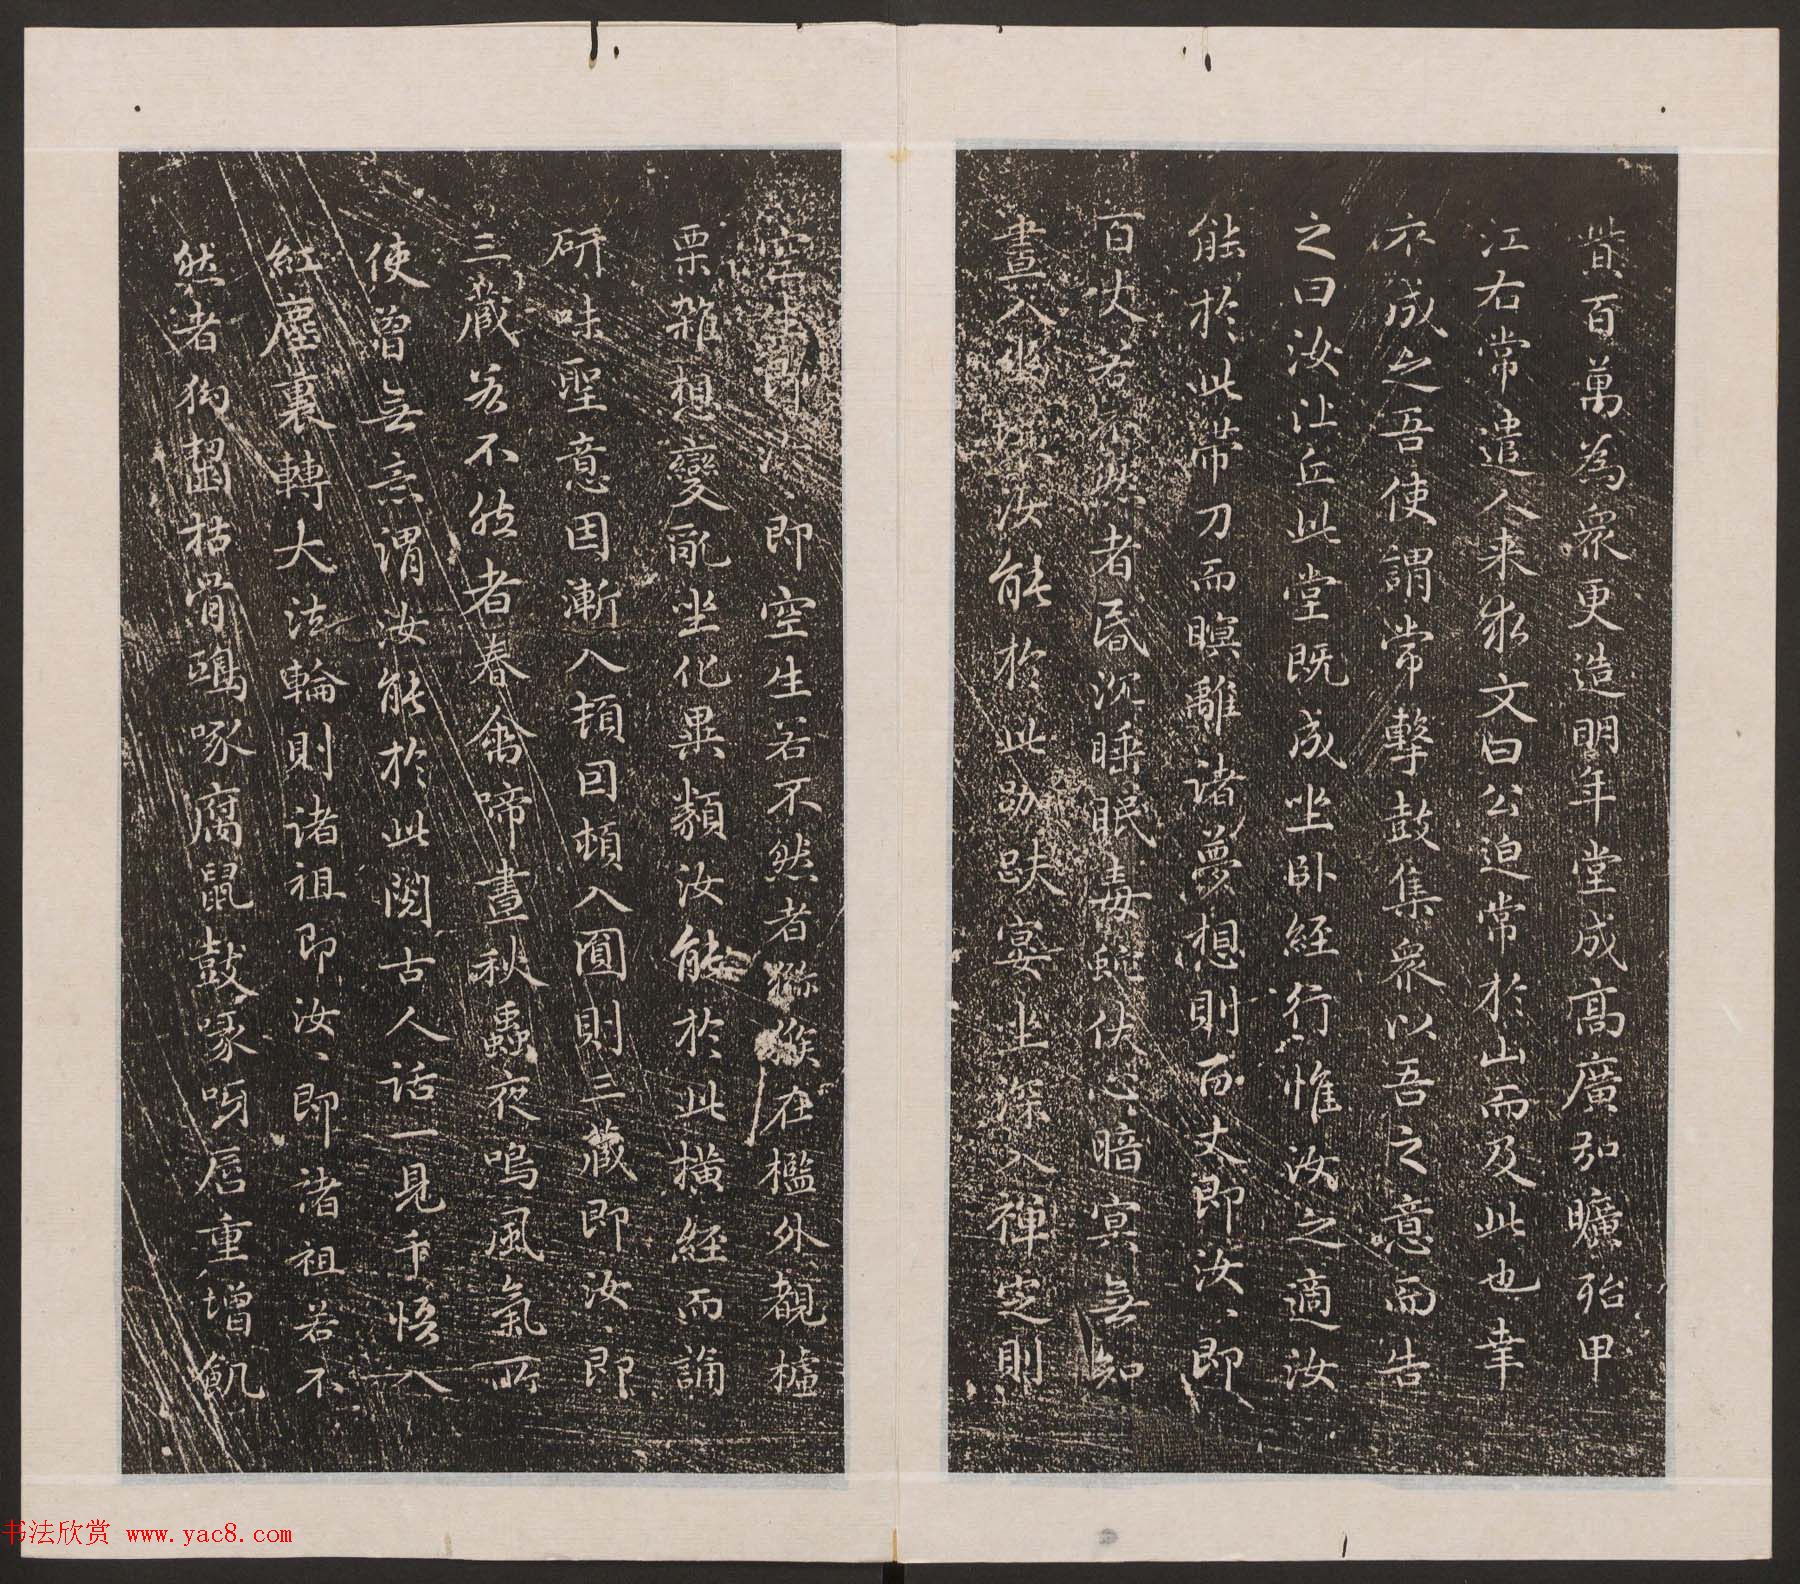 貲百萬為衆更造明年堂成高廣加曠殆甲
江右常遣人来求文曰公迫常於山而及此也幸
不成之吾使謂常擊鼓集衆以吾之意而告
之曰汝比丘此堂既成坐卧経行惟汝之適汝
能於此帶刀而瞑離諸夢想則百丈即汝、即
百丈若不然者昏沉睡眠毒蛇伏心暗冥無知
晝入幽 汝能於此跏趺宴坐深入禪定則
空生即汝、即空生若不然者獼猴在檻外觀樝
栗雜想變亂坐化異類汝能於此横経而誦
研味聖意因漸入頓因頓入圓則三藏即汝、即
三藏若不然者春禽啼晝秋蟲夜鳴風氣所
使曾無意謂汝能於此閲古人話一見千悟入
紅塵裏轉大法輪則諸祖即汝、即諸祖若不
然者狗齧枯骨鴟啄腐鼠鼓喙呀唇重增飢
书法欣赏 www.yac8.com